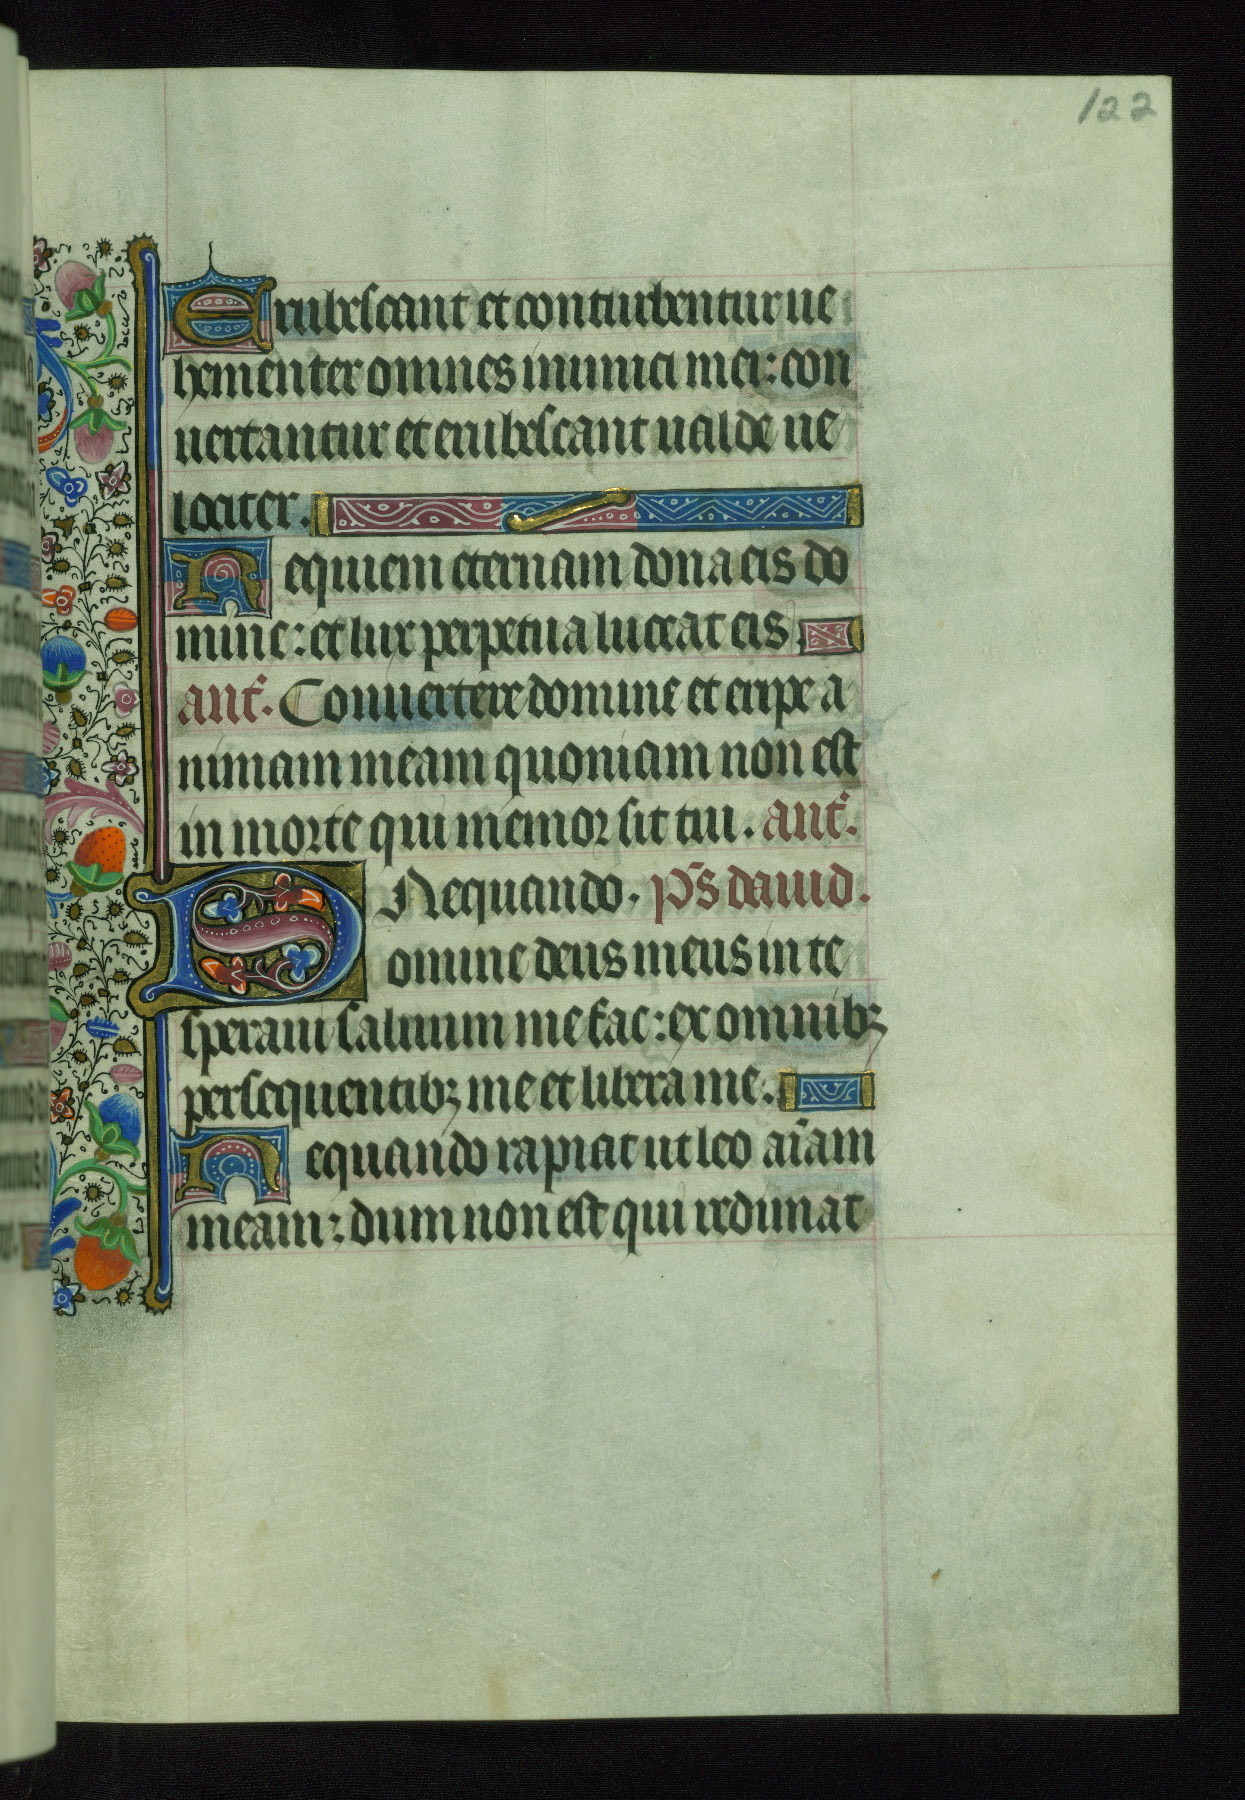 122
Erubescant et conturbentur ue
hementer omnes inimici mei: con
uertantur et erubescant ualde ue
lociter.
Requiem eternam dona eis do
mine: et lux perpetua luceat eis.
ant. Conuertere domine et eripe a
nimam meam quoniam non est
in morte qui memor sit tui. ant.
Nequando. p̄s dauid.
Domine deus meus in te
speraui saluum me fac: ex omnibꝫ
persequentibꝫ me et libera me.
Nequando rapiat ut leo aīam
meam: dum non est qui redimat